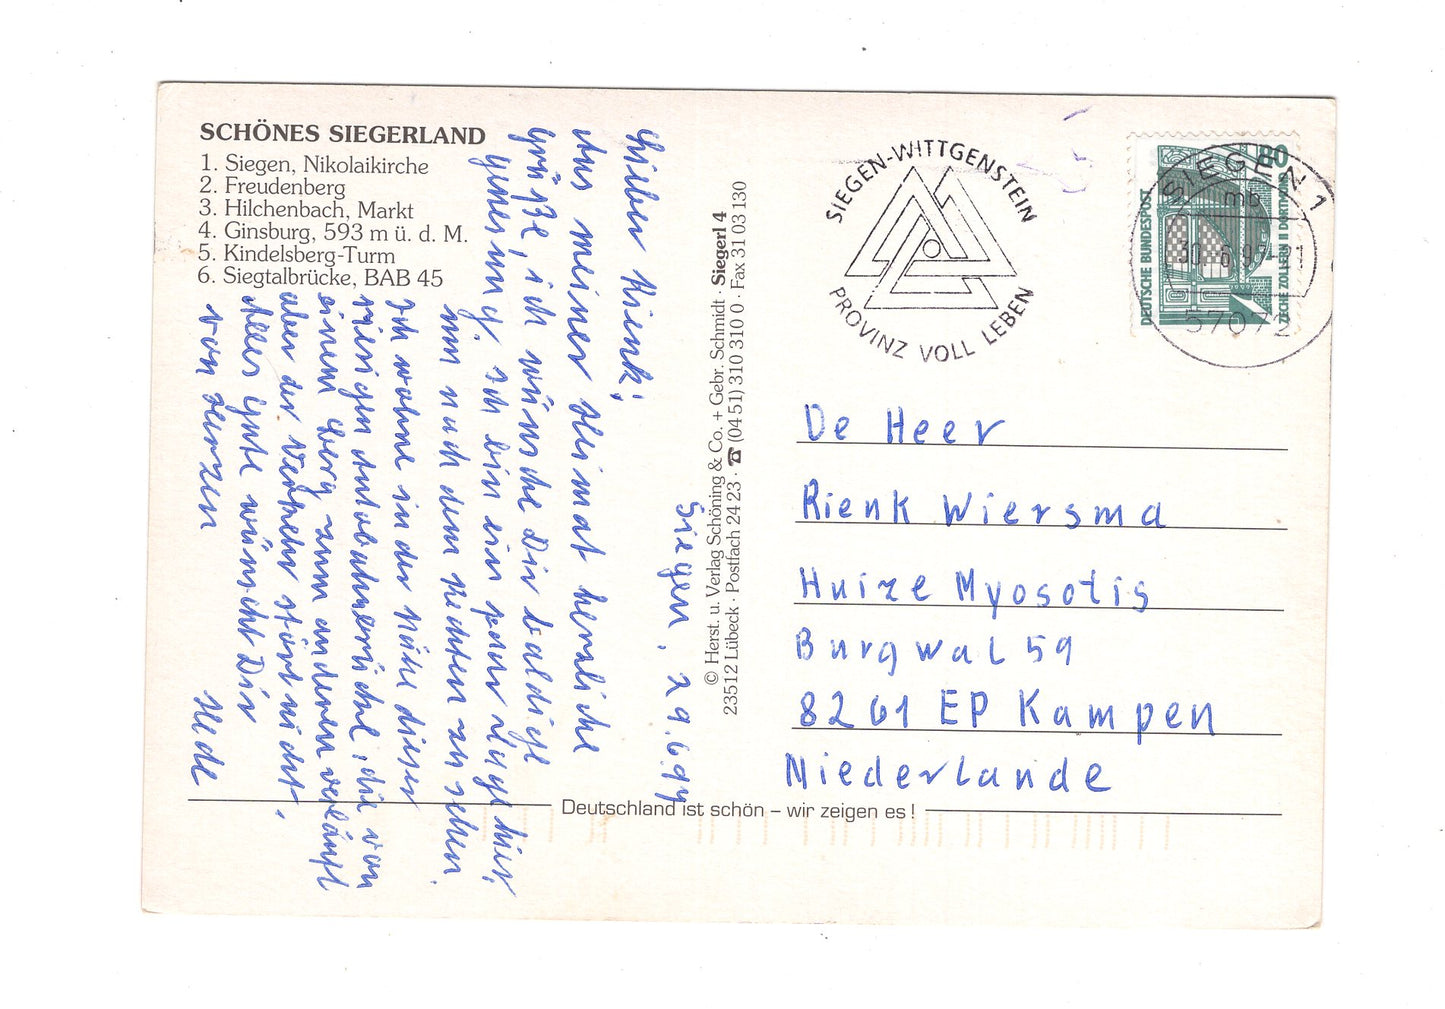 SCHÖNES SIEGERLAND
1. Siegen, Nikolaikirche
2. Freudenberg
3. Hilchenbach, Markt
4. Ginsburg, 593 m ü. d. M.
5. Kindelsberg-Turm
6. Siegtalbrücke, BAB 45
Siegen, 29.6.94
Lieber Rienk,
Aus meiner Heimat herzliche
Grüße, ich wünsche Dir baldige
Genesung. Ich bin ein paar Tage hier,
um nach dem Rechten zu sehen.
Ich wohne in der Nähe dieser
riesigen Autobahnbrücke, die von
einem Berg zum anderen verläuft
aber der Verkehr stört nicht.
Alles Gute wünscht Dir
von Herzen
Hede
© Herst. u. Verlag Schöning & Co. + Gebr. Schmidt · Siegerl 4
23512 Lübeck · Postfach 24 23 · ☎ (04 51) 310 310 0 · Fax 31 03 130
SIEGEN-WITTGENSTEIN
PROVINZ VOLL LEBEN
DEUTSCHE BUNDESPOST
80
ZECHE ZOLLERN II DORTMUND
SIEGEN 1
mb
30. 6. 9
57072
De Heer
Rienk Wiersma
Huize Myosotis
Burgwal 59
8261 EP Kampen
Niederlande
Deutschland ist schön – wir zeigen es !